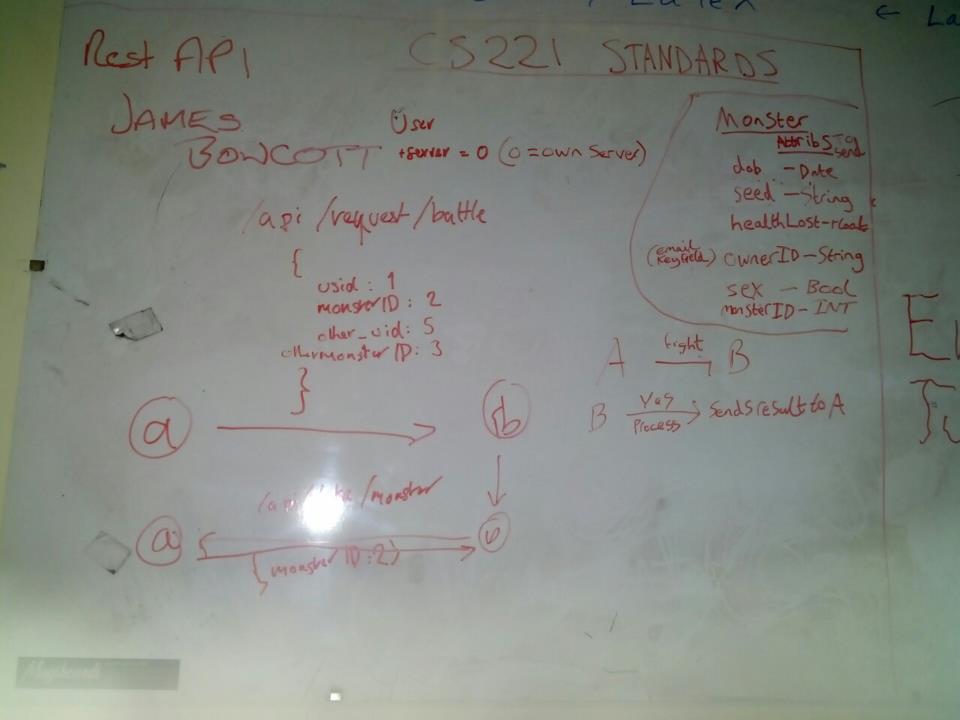 LaTeX
← La
Rest API
CS221 STANDARDS
JAMES
BOWCOTT
User
+server = 0 (0 = own server)
/api/request/battle
{
usid: 1
monsterID: 2
other_uid: 5
othermonsterID: 3
}
a
b
/monster
a
{monsterID: 2}
Monster
Attribs To
send
dob - Date
seed - String
healthLost - float
(email
keyfield) ownerID - String
sex - Bool
monsterID - INT
A fight B
B Yes
Process sends result to A